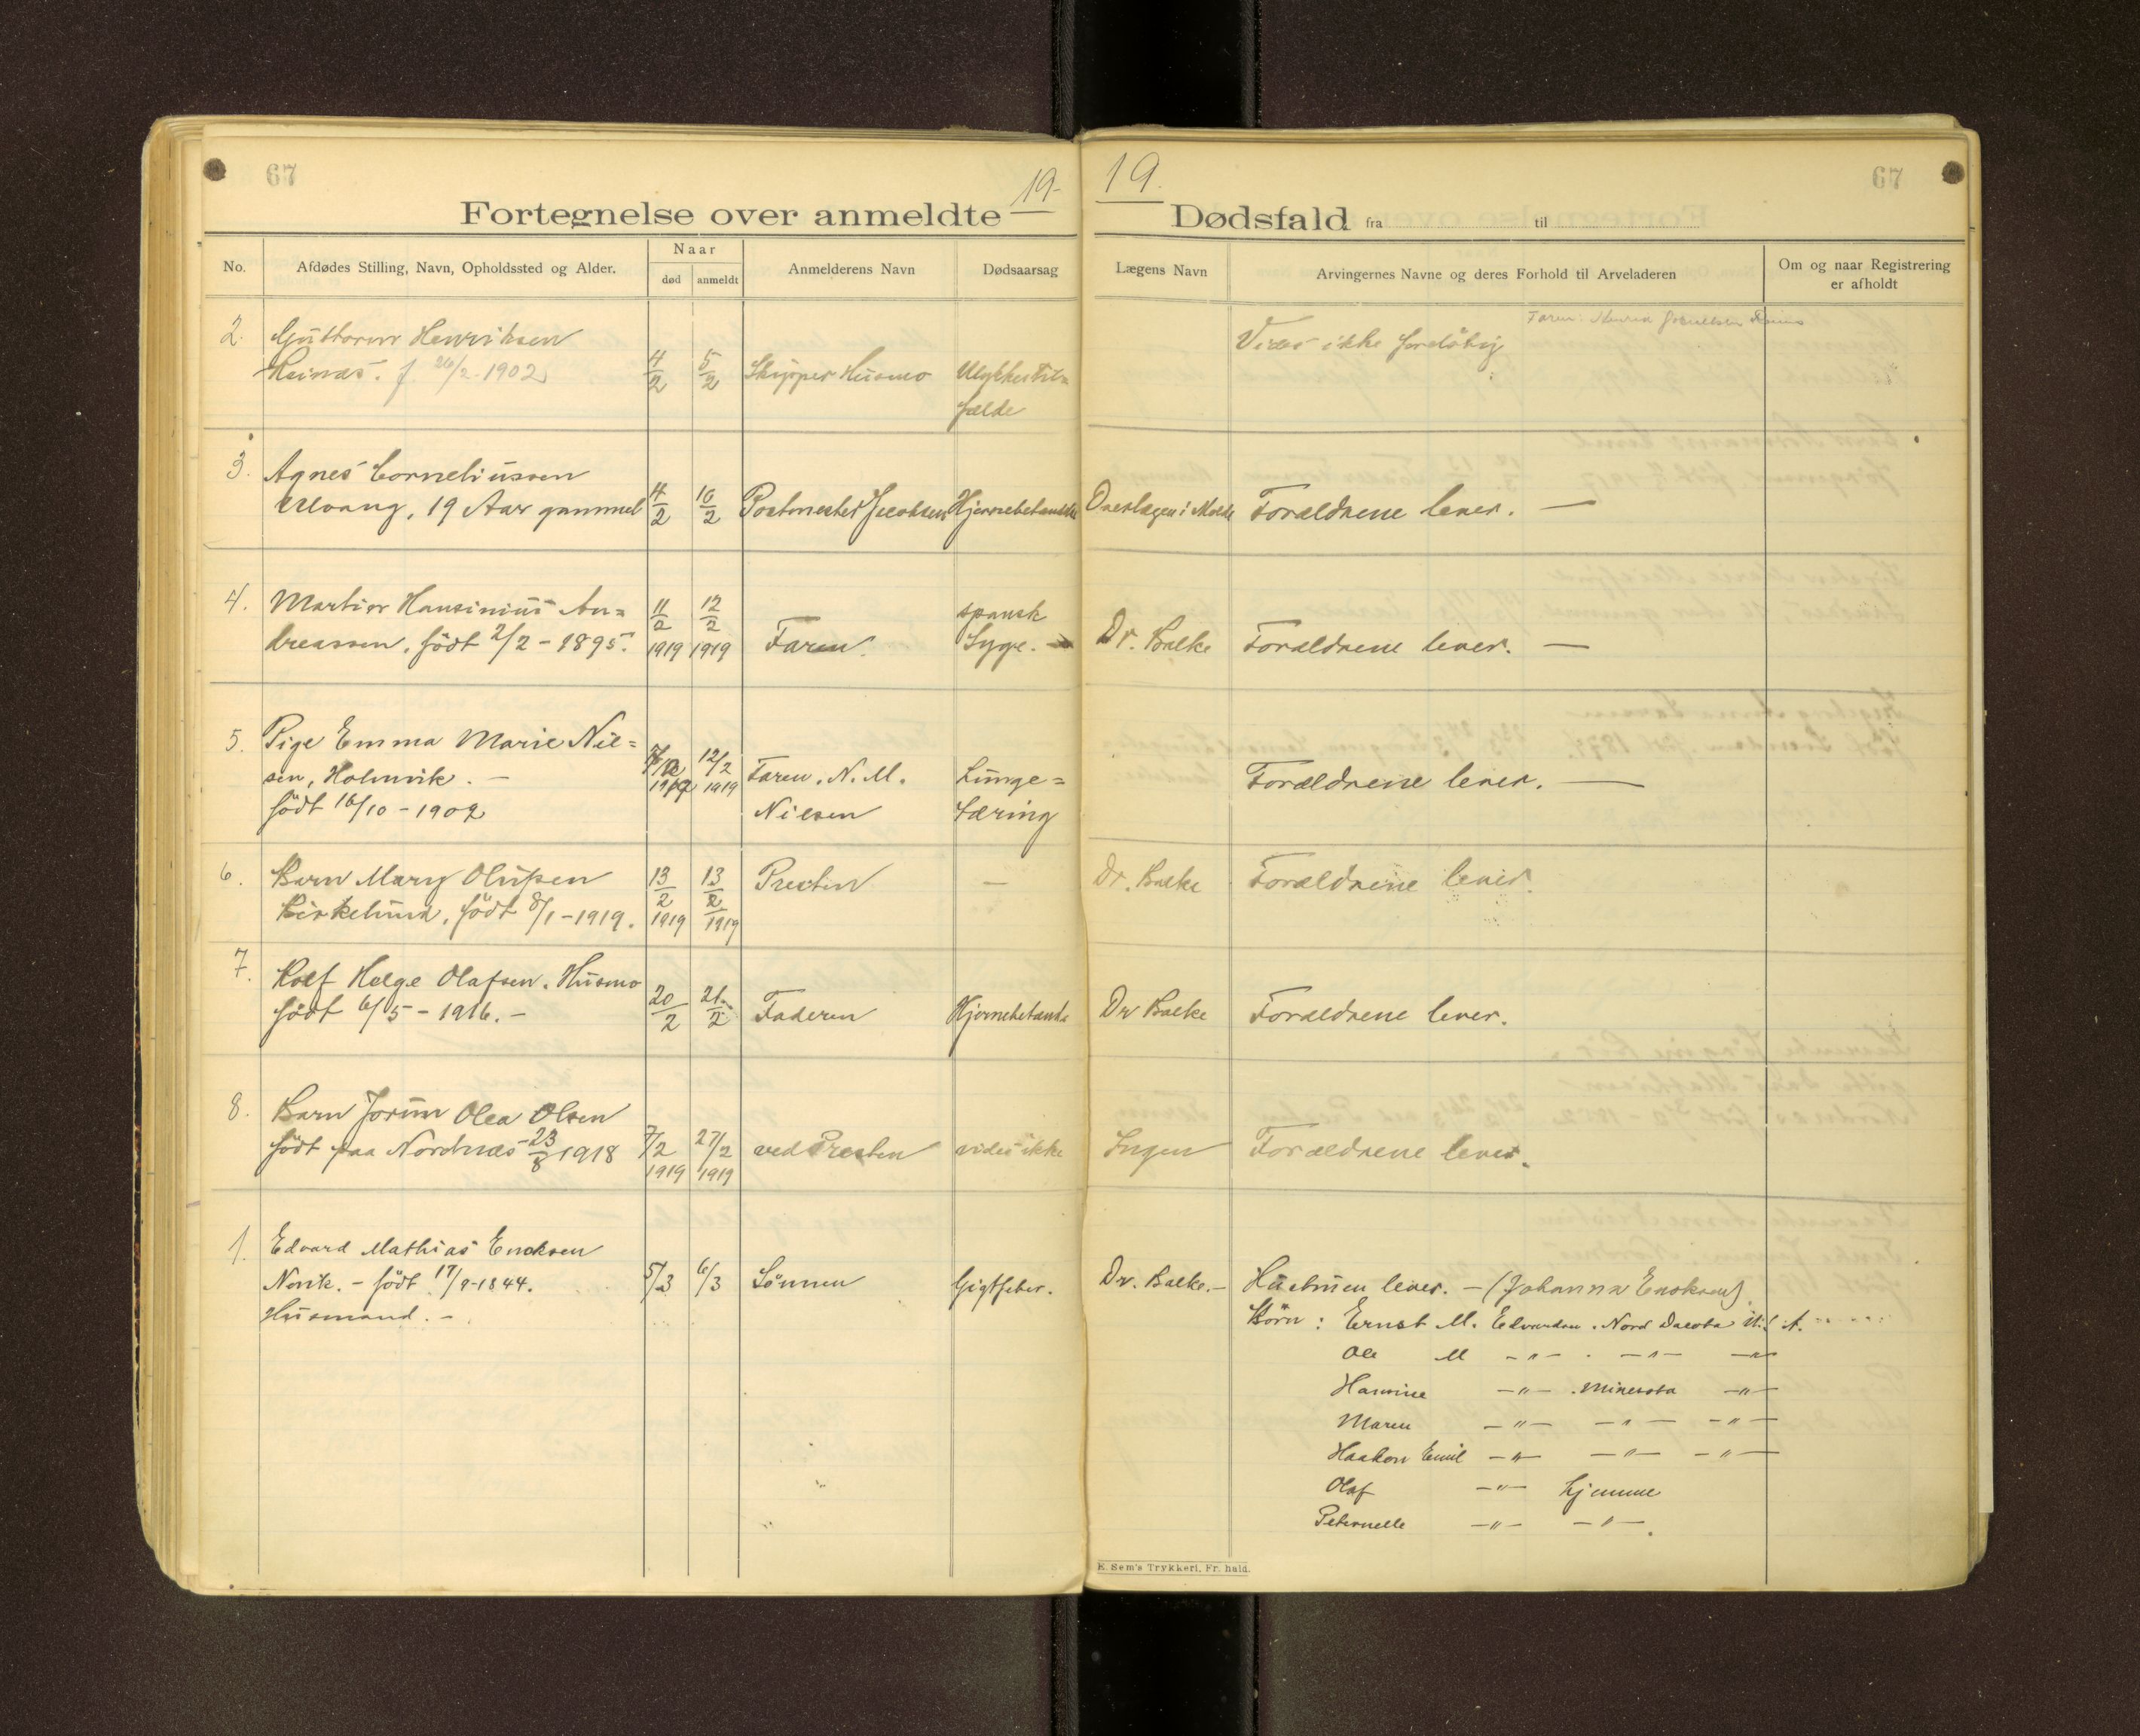 67
19.
Fortegnelse over anmeldte
No.
Afdødes Stilling, Navn, Opholdssted og Alder.
Naar
død
anmeldt
Anmelderens Navn
Dødsaarsag
2.
Guttorm Henriksen
Reinæs. f. 26/2-1902
4/2
5/2
Skipper Husmo
Ulykkestil=
fælde
3.
Agnes Corneliussen
Ulvang, 19 Aar gammel
4/2
10/2
Postmester Jacobsen
4.
Martin Hansinius An=
dreassen, født 2/2 - 1895.
11/2
1919
12/2
1919
Faren.
spansk
Syge. -
5.
Pige Emma Marie Niel=
sen, Holmvik. -
født 16/10 - 1902
12/2
1919
Faren. N. M.
Nielsen
Lunge=
tæring
6.
Barn Mary Olufsen
Birkelund, født 8/1-1919.
13/2
1919
13/2
1919
Presten
—
7.
Rolf Helge Olafsen. Husmo
født 6/5 - 1916. -
20/2
21/2
Faderen
Hjernebetænd
8.
Barn Jorun Olea Olsen
født paa Nordnæs 23/8 1918
7/2
1919
27/2
1919
ved Presten
vides ikke
1.
Edvard Mathias Enoksen
Norvik. - født 17/9-1844.
Husmand. -
5/3
6/3
Sønnen
Gigtfeber.
19.
67
Dødsfald fra til
Lægens Navn
Arvingernes Navne og deres Forhold til Arveladeren
Om og naar Registrering
er afholdt
Faren:
Vides ikke foreløbig
Overlægen i Molde
Forældrene lever. —
Dr. Balke
Forældrene lever. —
Forældrene lever. —
Dr. Balke
Forældrene lever.
Dr Balke
Forældrene lever.
Ingen
Forældrene lever.
Dr. Balke. -
Hustruen lever. - (Johanna Enoksen).
Børn: Ernst M. Edvardsen. Nord Dacota U. S. A.
Ole M -"- . -"- -"-
Hansine -"- . Minesota -"-
Maren -"- -"- -"-
Haakon Emil -"- -"- -"-
Olaf -"- hjemme
Peternelle -"- -"- .
E. Sem's Trykkeri, Fr. hald.